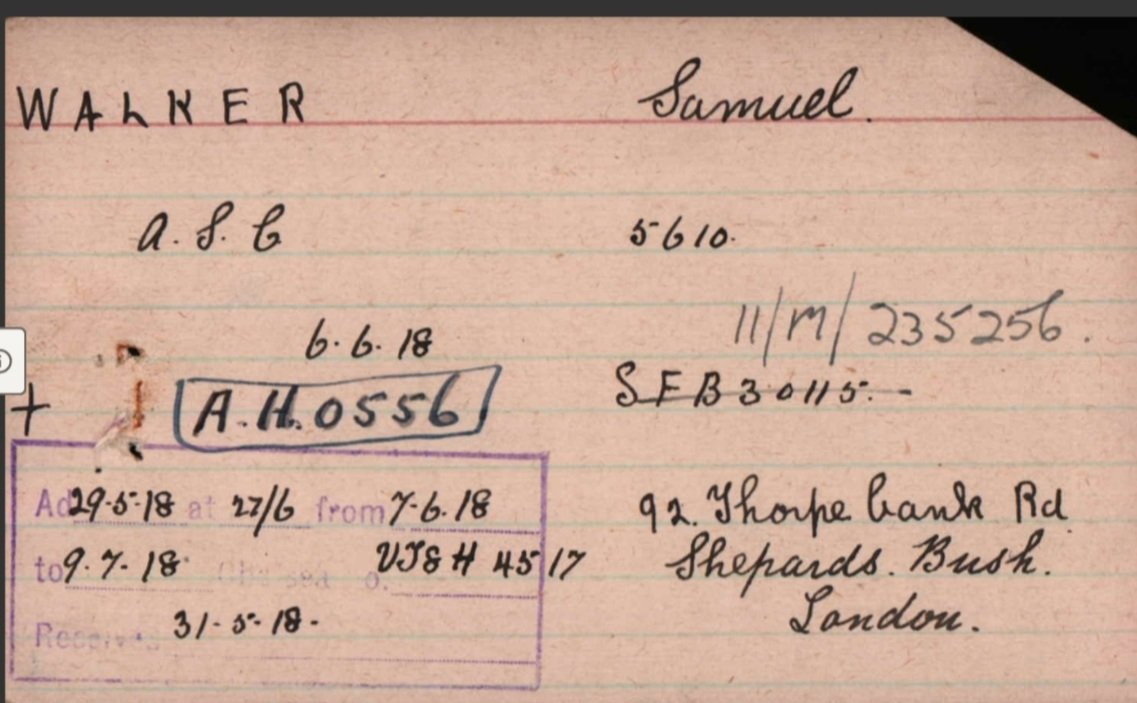 WALKER Samuel.
A.S.C 5610.
11/M/235256.
6.6.18
SFB30115.-
+ A.H.0556
Ad 29-5-18 at 27/6 from 7-6.18
92. Thorpe bank Rd
to 9.7.18 Chelsea o. UJ&H 45/17
Shepards. Bush.
Received 31-5-18-
London.